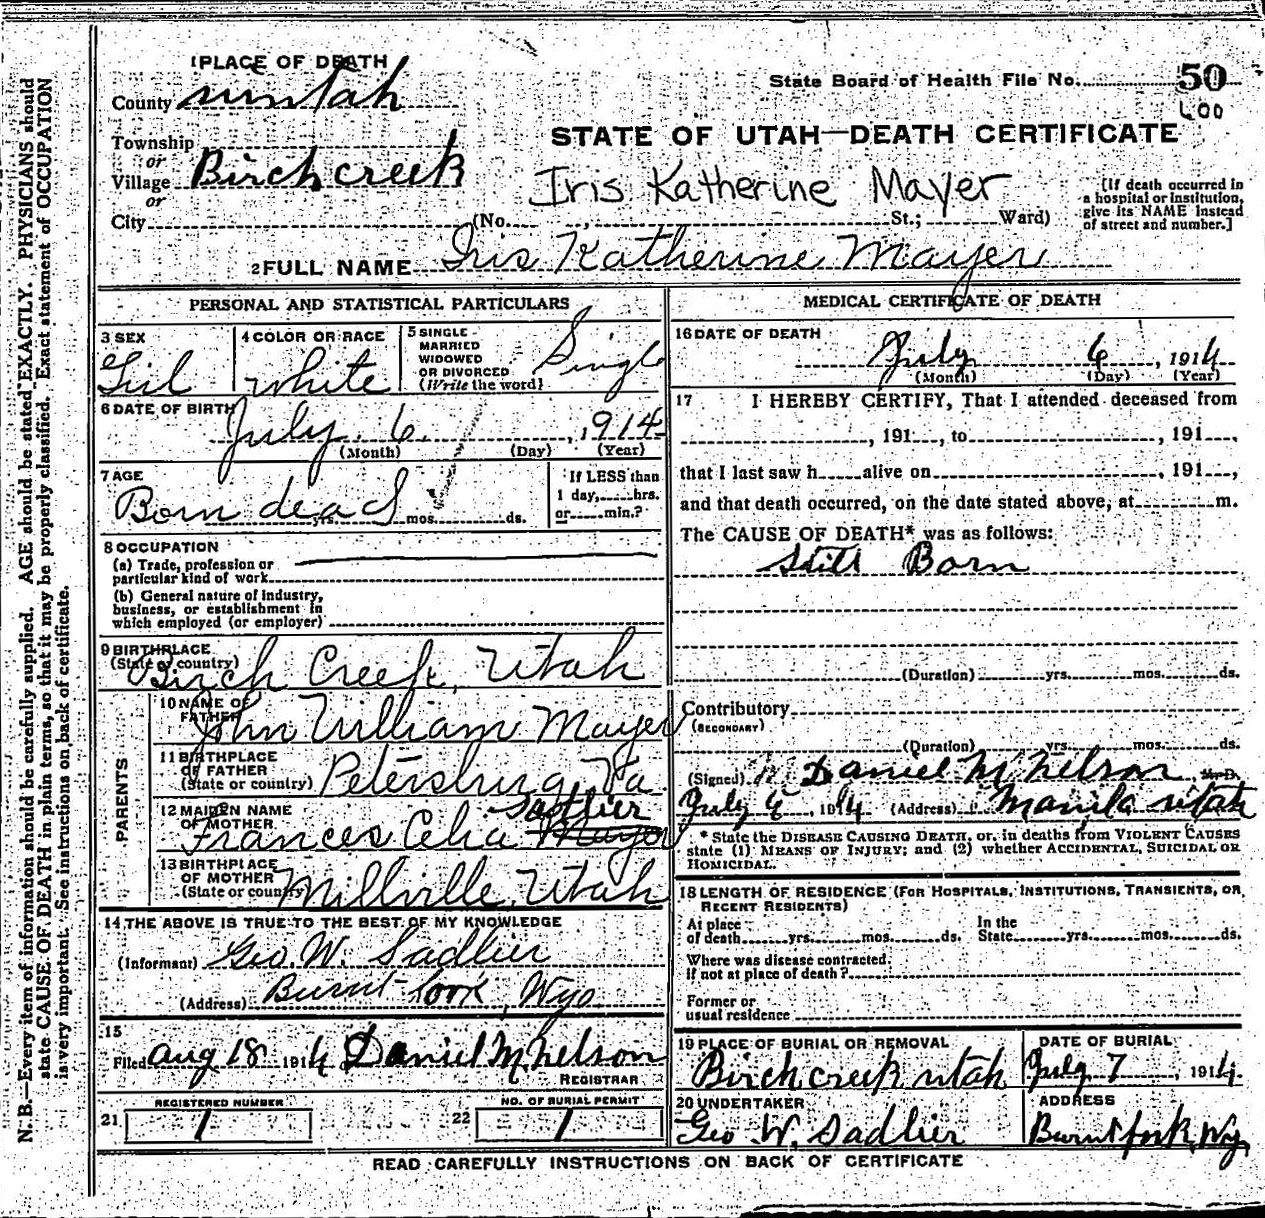 1 PLACE OF DEATH
County uintah
State Board of Health File No. 50
600
STATE OF UTAH—DEATH CERTIFICATE
Township
or
Village Birch creek
or
City (No. , St.; Ward)
Iris Katherine Mayer
[If death occurred in
a hospital or institution,
give its NAME instead
of street and number.]
2 FULL NAME Iris Katherine Mayer
PERSONAL AND STATISTICAL PARTICULARS
3 SEX
Girl
4 COLOR OR RACE
white
5 SINGLE
MARRIED
WIDOWED
OR DIVORCED
(Write the word)
Single
6 DATE OF BIRTH
July 6, 1914
(Month) (Day) (Year)
7 AGE
Born dead
yrs. mos. ds.
If LESS than
1 day, hrs.
or min.?
8 OCCUPATION
(a) Trade, profession or
particular kind of work
(b) General nature of industry,
business, or establishment in
which employed (or employer)
9 BIRTHPLACE
(State or country)
Birch Creek, Utah
PARENTS
10 NAME OF
FATHER
John William Mayer
11 BIRTHPLACE
OF FATHER
(State or country)
Petersburg, Va
12 MAIDEN NAME
OF MOTHER
Frances Celia Mayer
Sadlier
13 BIRTHPLACE
OF MOTHER
(State or country)
Millville, Utah
14 THE ABOVE IS TRUE TO THE BEST OF MY KNOWLEDGE
(Informant) Geo. W. Sadlier
(Address) Burnt fork, Wyo
15
Filed aug 18 1914 Daniel M. Nelson
REGISTRAR
21
REGISTERED NUMBER
1
22
NO. OF BURIAL PERMIT
1
MEDICAL CERTIFICATE OF DEATH
16 DATE OF DEATH
July 6, 1914
(Month) (Day) (Year)
17 I HEREBY CERTIFY, That I attended deceased from
, 191 , to , 191 ,
that I last saw h alive on , 191 ,
and that death occurred, on the date stated above, at m.
The CAUSE OF DEATH* was as follows:
Still Born
(Duration) yrs. mos. ds.
Contributory
(SECONDARY)
(Duration) yrs. mos. ds.
(Signed) Daniel M Nelson M.D.
July 6, 1914 (Address) Manila utah
* State the DISEASE CAUSING DEATH, or, in deaths from VIOLENT CAUSES
state (1) MEANS OF INJURY; and (2) whether ACCIDENTAL, SUICIDAL OR
HOMICIDAL.
18 LENGTH OF RESIDENCE (FOR HOSPITALS, INSTITUTIONS, TRANSIENTS, OR
RECENT RESIDENTS)
At place
of death yrs. mos. ds.
In the
State yrs. mos. ds.
Where was disease contracted,
if not at place of death?
Former or
usual residence
19 PLACE OF BURIAL OR REMOVAL
Birch creek utah
DATE OF BURIAL
July 7, 1914
20 UNDERTAKER
Geo W. Sadlier
ADDRESS
Burnt fork, Wy
READ CAREFULLY INSTRUCTIONS ON BACK OF CERTIFICATE
N. B.—Every item of information should be carefully supplied. AGE should be stated EXACTLY. PHYSICIANS should
state CAUSE OF DEATH in plain terms, so that it may be properly classified. Exact statement of OCCUPATION
is very important. See instructions on back of certificate.